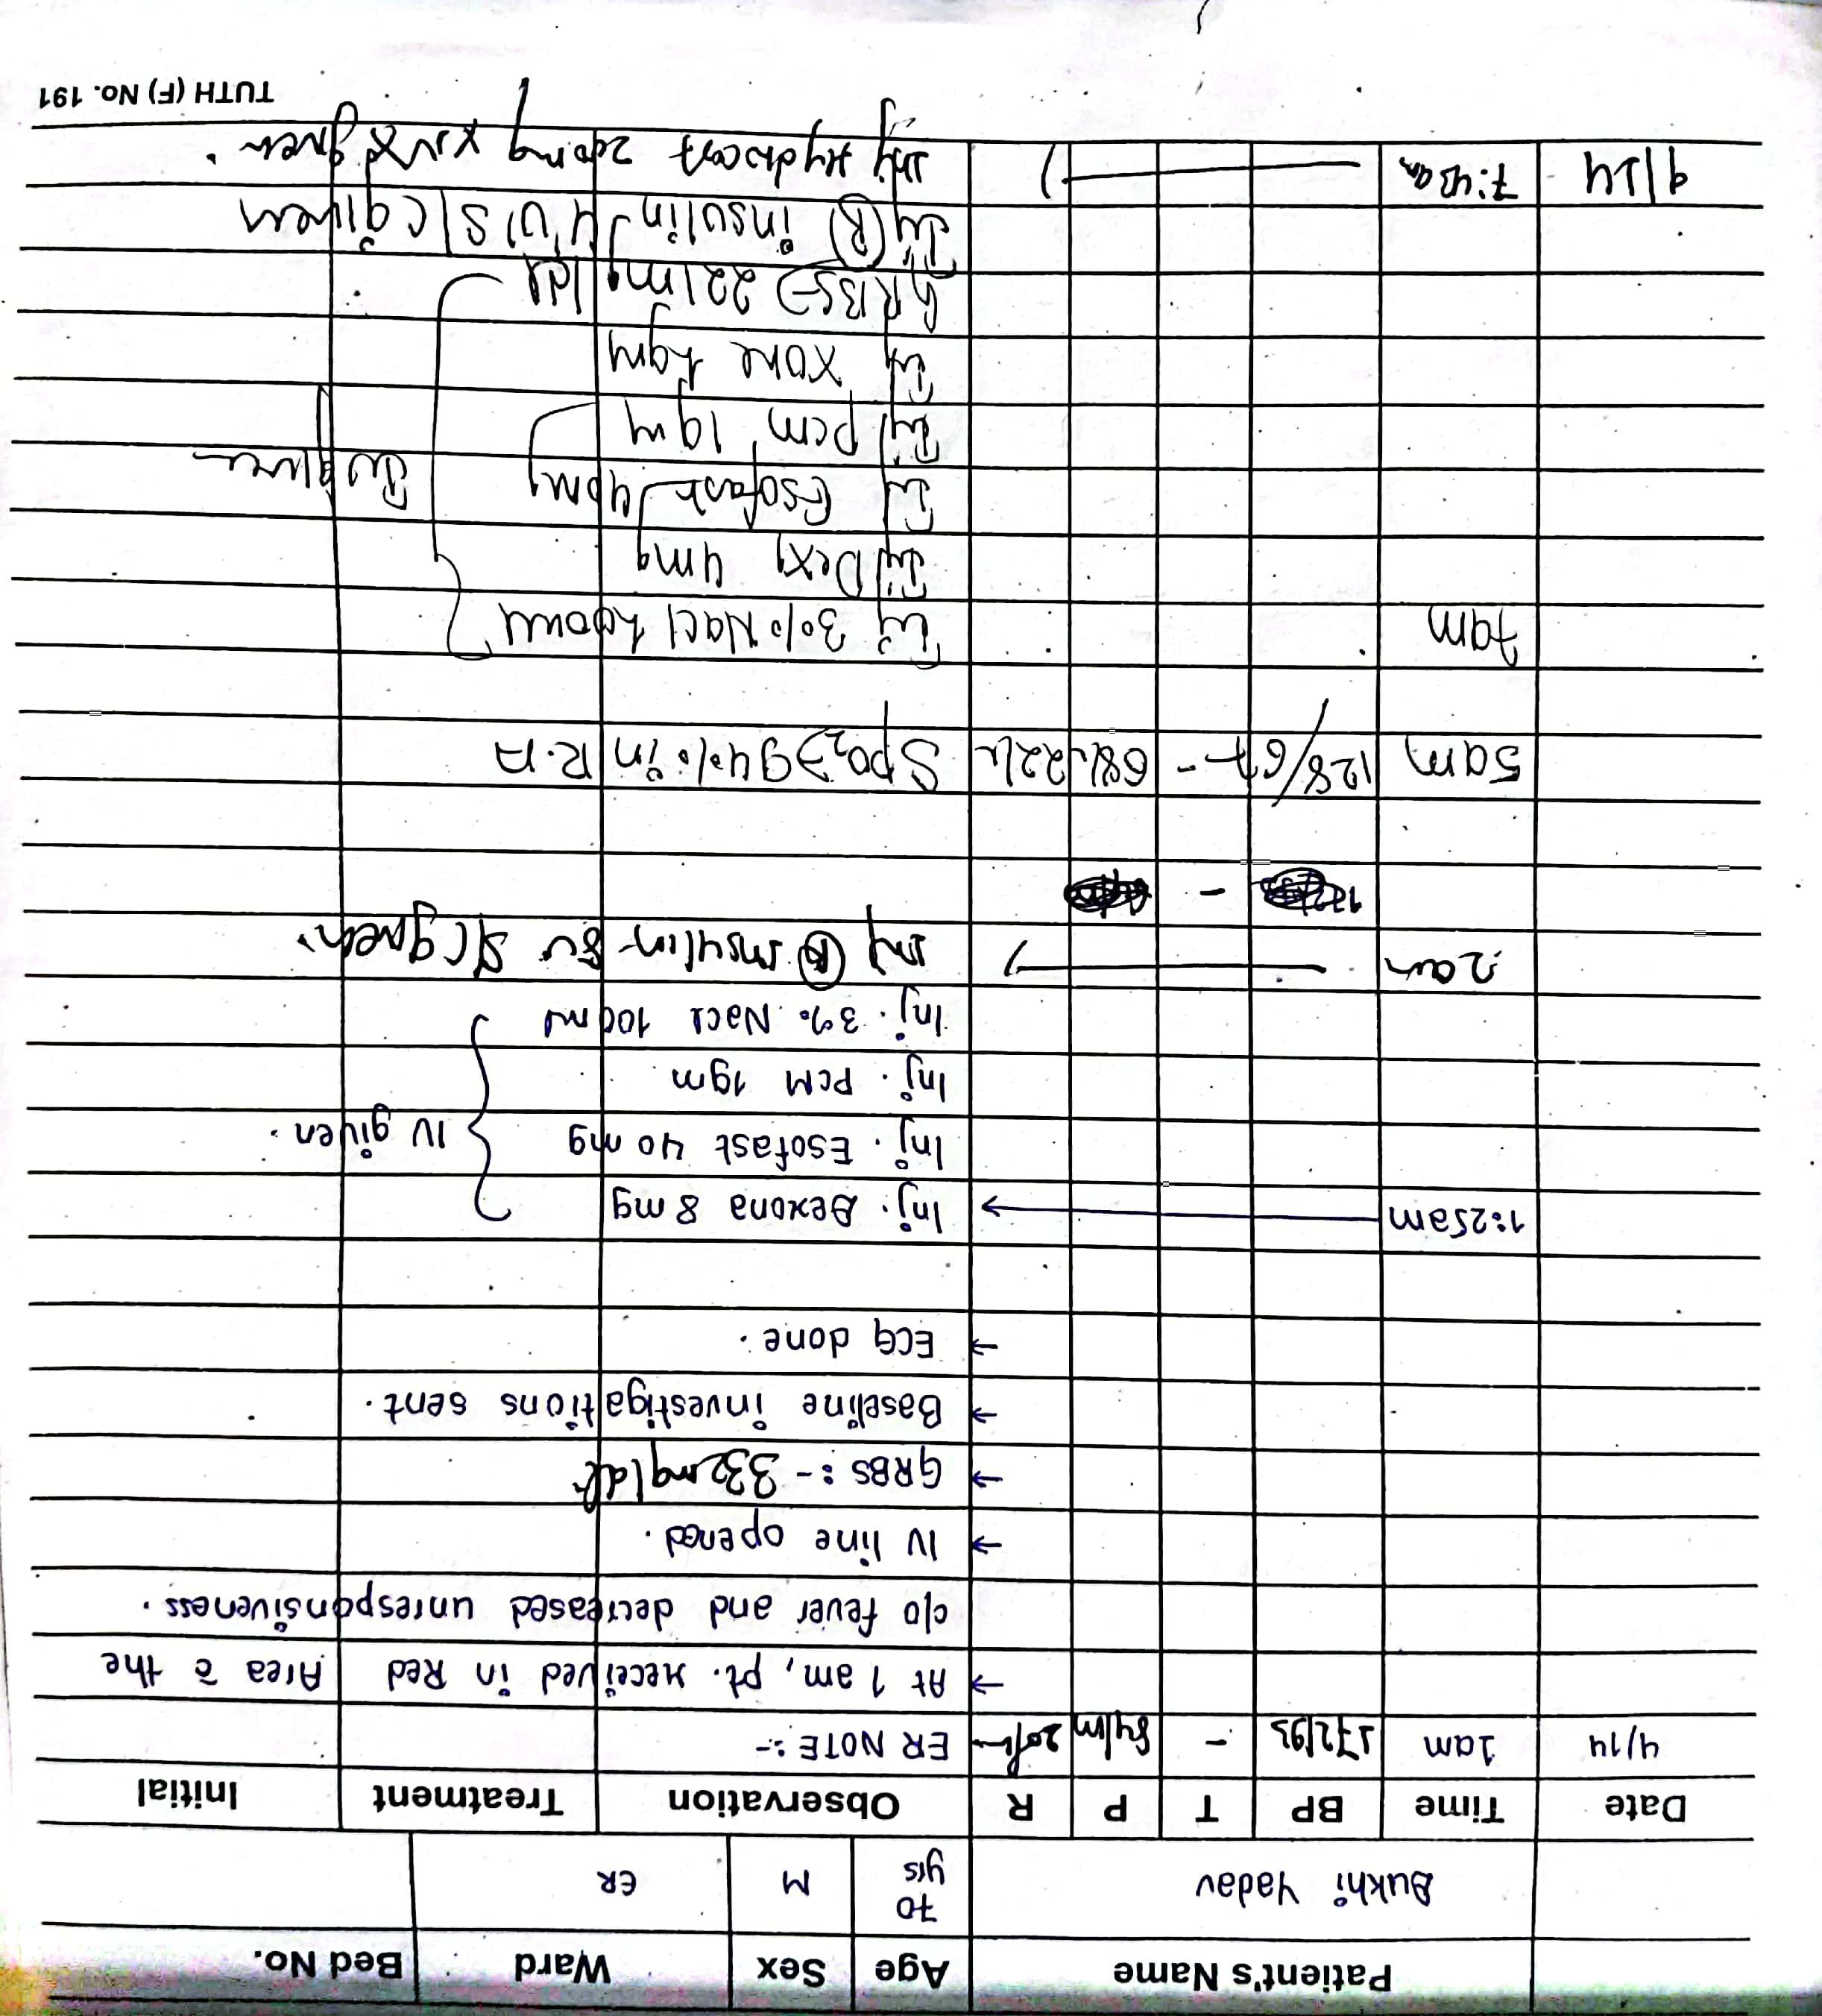 Patient's Name Age Sex Ward Bed No.
Bukhi Yadav 70 yrs M ER
Date Time BP T P R Observation Treatment Initial
4/14 1am 172/93 - 84/m 20/m ER NOTE :-
→ At 1 am, pt. received in Red Area c̄ the
c/o fever and decreased unresponsiveness.
→ IV line opened.
→ GRBS :- 332mg/dl
→ Baseline investigations sent.
→ ECG done.
1:25am → Inj. Dexona 8mg
Inj. Esofast 40 mg IV given.
Inj. PCM 1gm
Inj. 3% Nacl 100ml
2am Inj Ⓡ insulin 8u S/C given.
-
5am 128/67 - 68/ 22/ SpO2 → 94% in R.A
7am Inj 3% Nacl 100ml
Inj Dexa 4mg
Inj Esofast 40mg IV given
Inj pcm 1gm
Inj xone 1gm
GRBS → 221mg/dl
Inj Ⓡ insulin 4 U S/C given
7:45am Inj Hydrocort 200mg given.
TUTH (F) No. 191